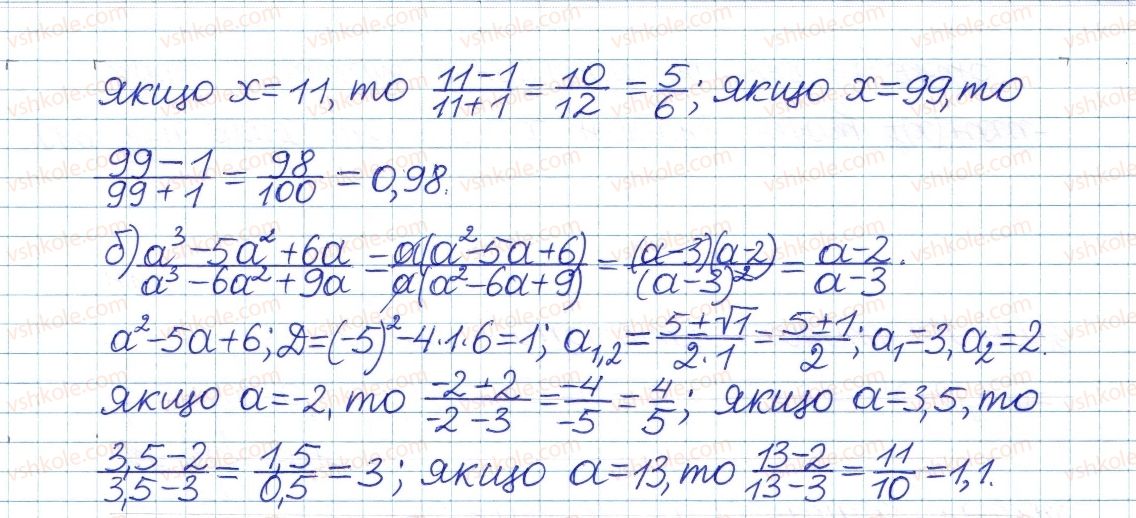 якщо x=11, то (11-1)/(11+1) = 10/12 = 5/6; якщо x=99, то
(99-1)/(99+1) = 98/100 = 0,98.
б) (a³-5a²+6a)/(a³-6a²+9a) = a(a²-5a+6)/a(a²-6a+9) = (a-3)(a-2)/(a-3)² = (a-2)/(a-3).
a²-5a+6; D=(-5)²-4·1·6=1; a₁,₂ = (5±√1)/(2·1) = (5±1)/2; a₁=3, a₂=2.
якщо a=-2, то (-2+2)/(-2-3) = (-4)/(-5) = 4/5; якщо a=3,5, то
(3,5-2)/(3,5-3) = 1,5/0,5 = 3; якщо a=13, то (13-2)/(13-3) = 11/10 = 1,1.